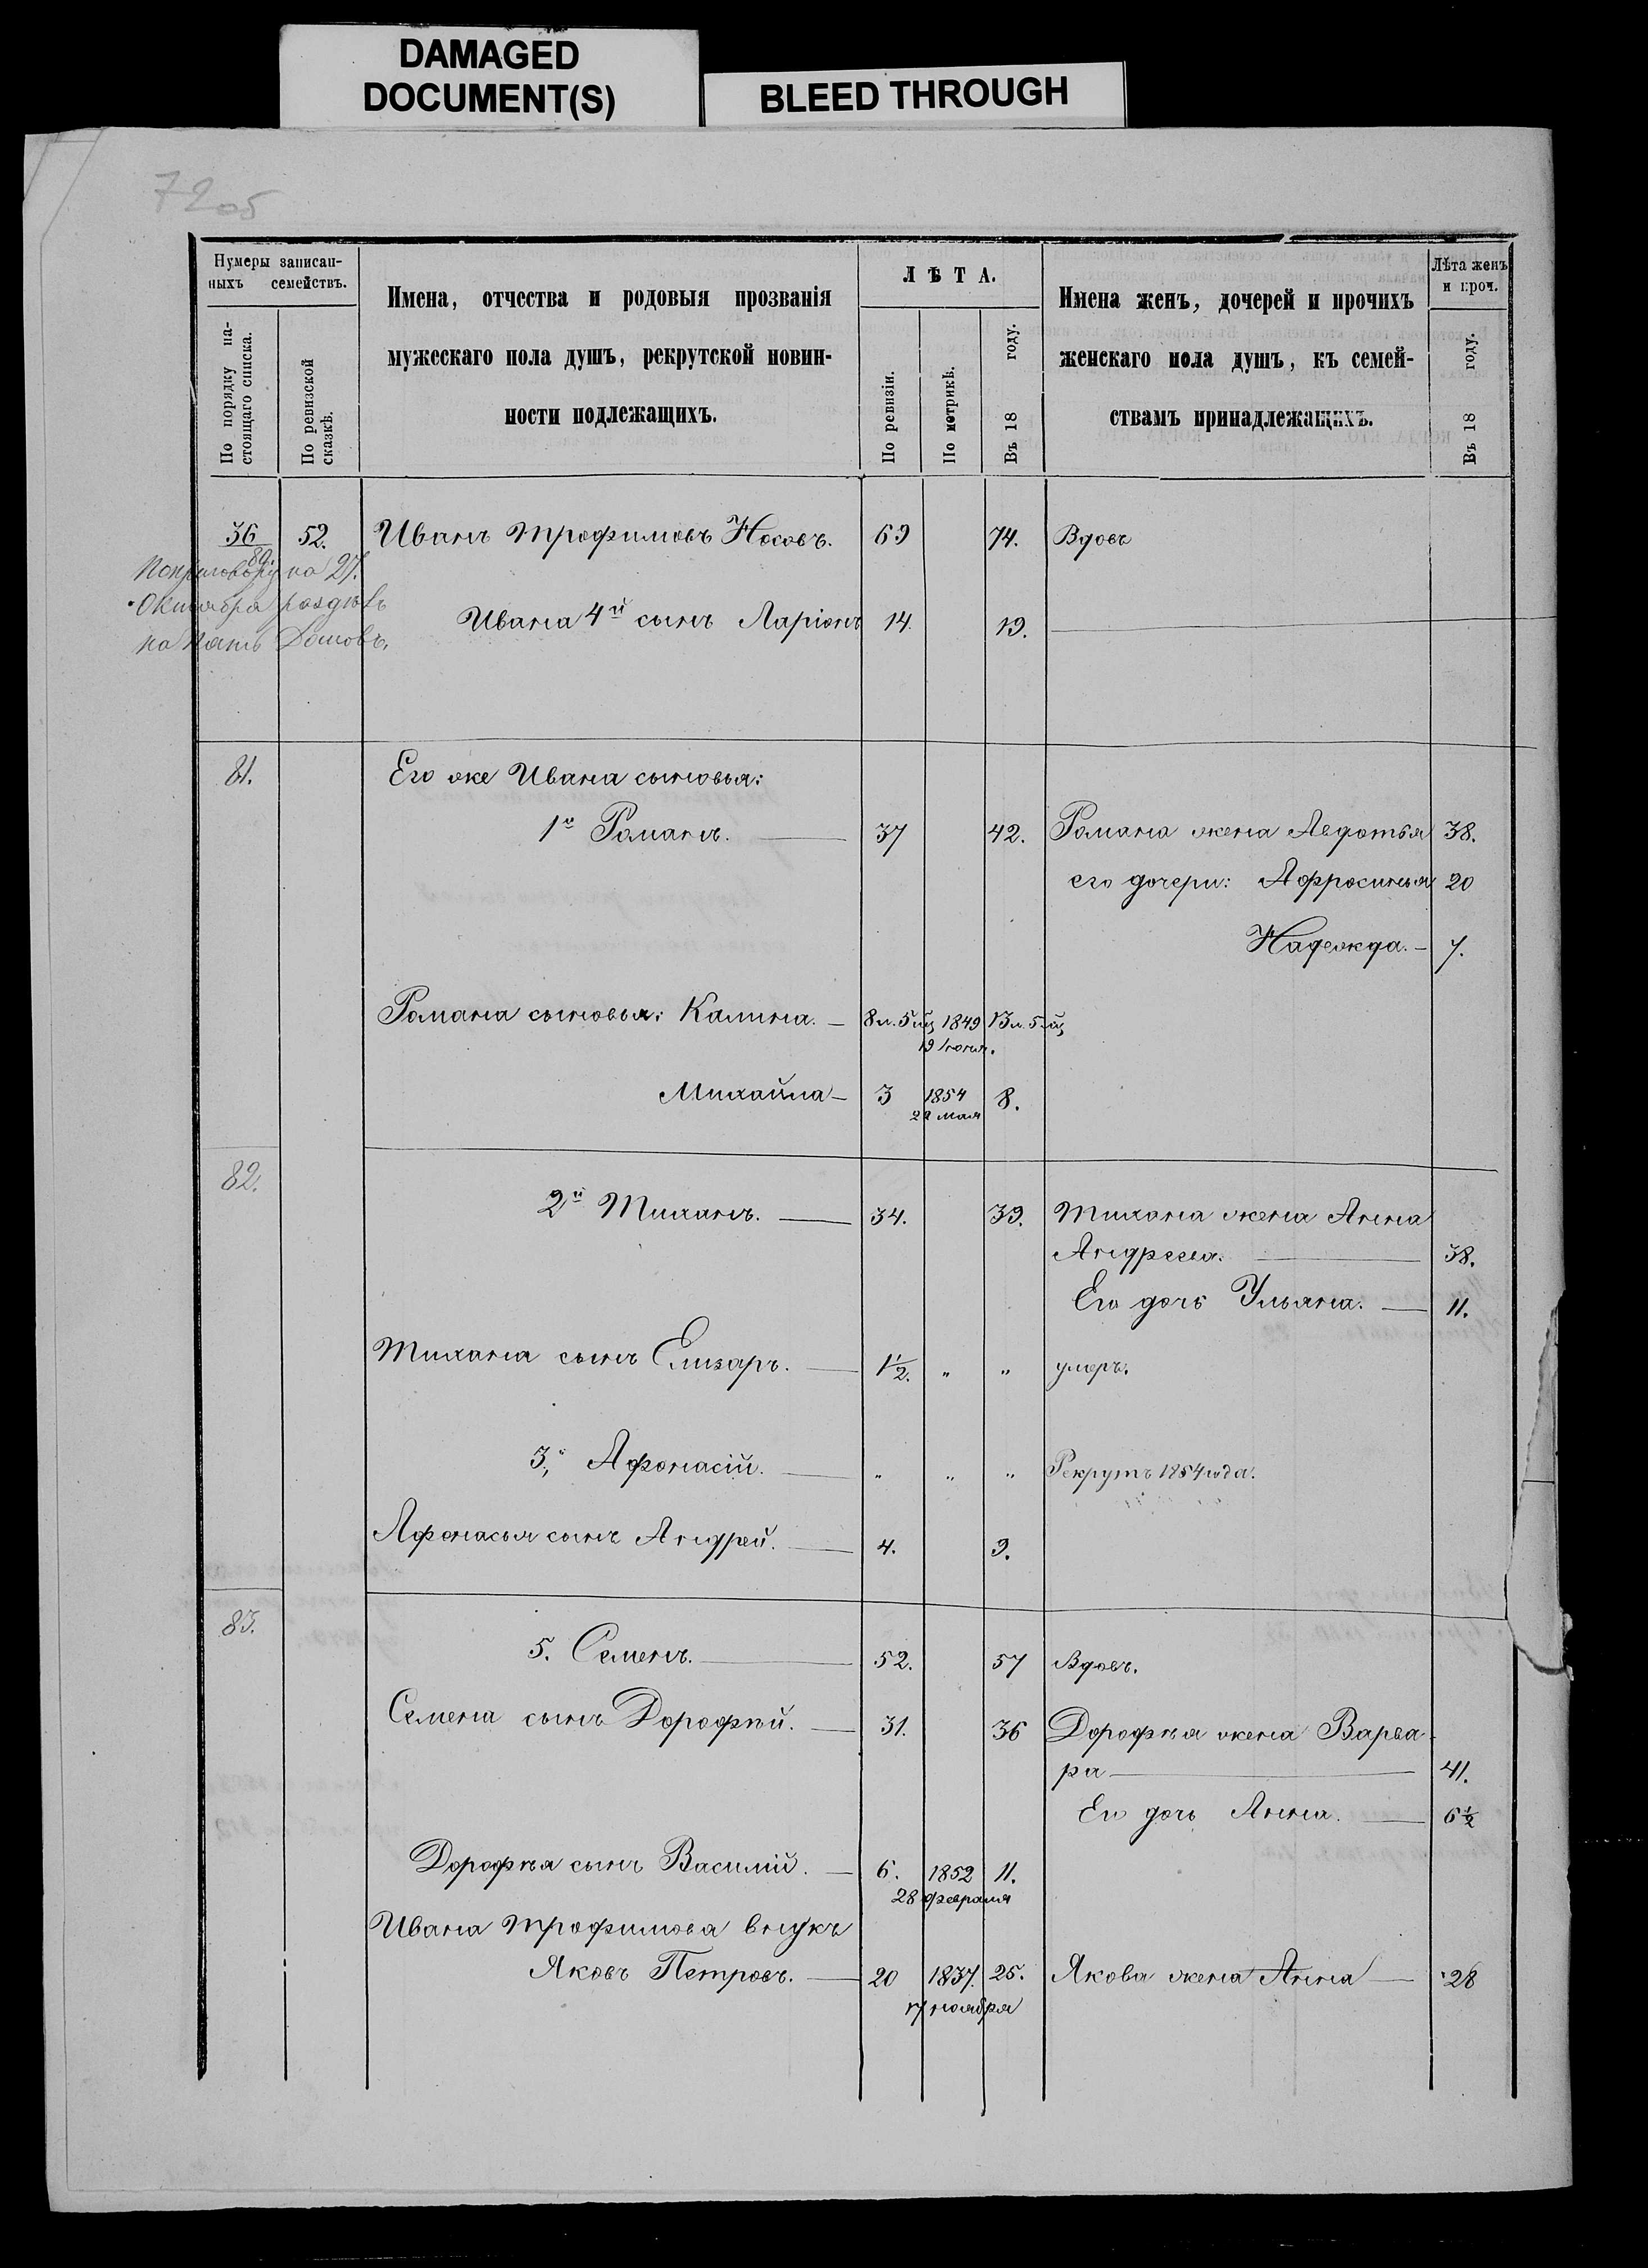 DAMAGED
DOCUMENT(S)
BLEED THROUGH
7205
Нумеры записан-
ныхъ семействъ.
По порядку на-
стоящаго списка.
По ревизской
сказкѣ.
Имена, отчества и родовыя прозванія
мужескаго пола душъ, рекрутской повин-
ности подлежащихъ.
ЛѢТА.
По ревизіи.
По метрикѣ.
Въ 18 году.
Имена женъ, дочерей и прочихъ
женскаго пола душъ, къ семей-
ствамъ принадлежащихъ.
Лѣта женъ
и проч.
Въ 18 году.
36 52. Иванъ Трофимовъ Носовъ. 69 74. Вдовъ
80.
По приговору на 27.
Октября раздѣлъ
на пять Домовъ.
Ивана 4й сынъ Ларіонъ 14. 19.
81. Его же Ивана сыновья:
1й Романъ. 37 42. Романа жена Авдотья 38.
его дочери: Афросинья 20
Надежда. 7.
Романа сыновья: Калина. 8 л. 5 мц 1849 13 л. 5 мц
19 Іюля.
Михайла 3 1854 8.
28 мая
82.
2й Тиханъ. 34. 39. Тихана жена Анна
Андреева. 38.
Его дочь Ульяна. 11.
Тихана сынъ Елизаръ. 1½. " " умеръ.
3й Афонасій. " " " Рекрутъ 1854 года.
Афонасья сынъ Андрей. 4. 9.
83.
5. Семенъ. 52. 57 Вдовъ.
Семена сынъ Дорофѣй. 31. 36 Дорофѣя жена Варва-
ра 41.
Его дочь Анна. 6½
Дорофѣя сынъ Василій. 6. 1852 11.
28 февраля
Ивана Трофимова внукъ
Яковъ Петровъ. 20 1837. 25. Якова жена Анна 28
17 ноября